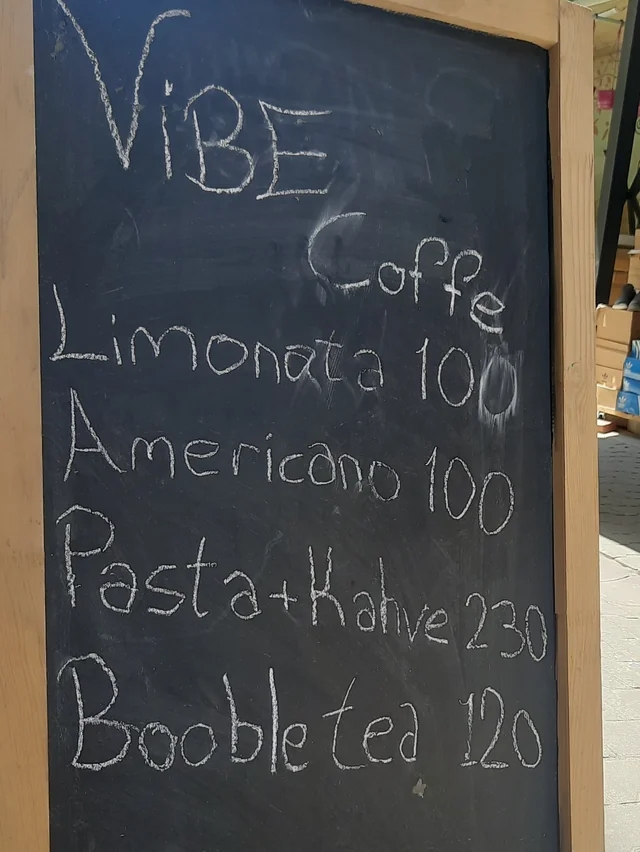 ViBE
Coffe
Limonata 100
Americano 100
Pasta+Kahve 230
Booble tea 120